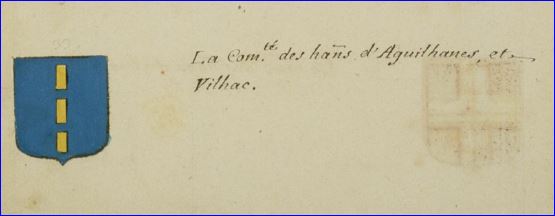 La Com.té des hãns d'Aguilhanes, et
Vilhac.